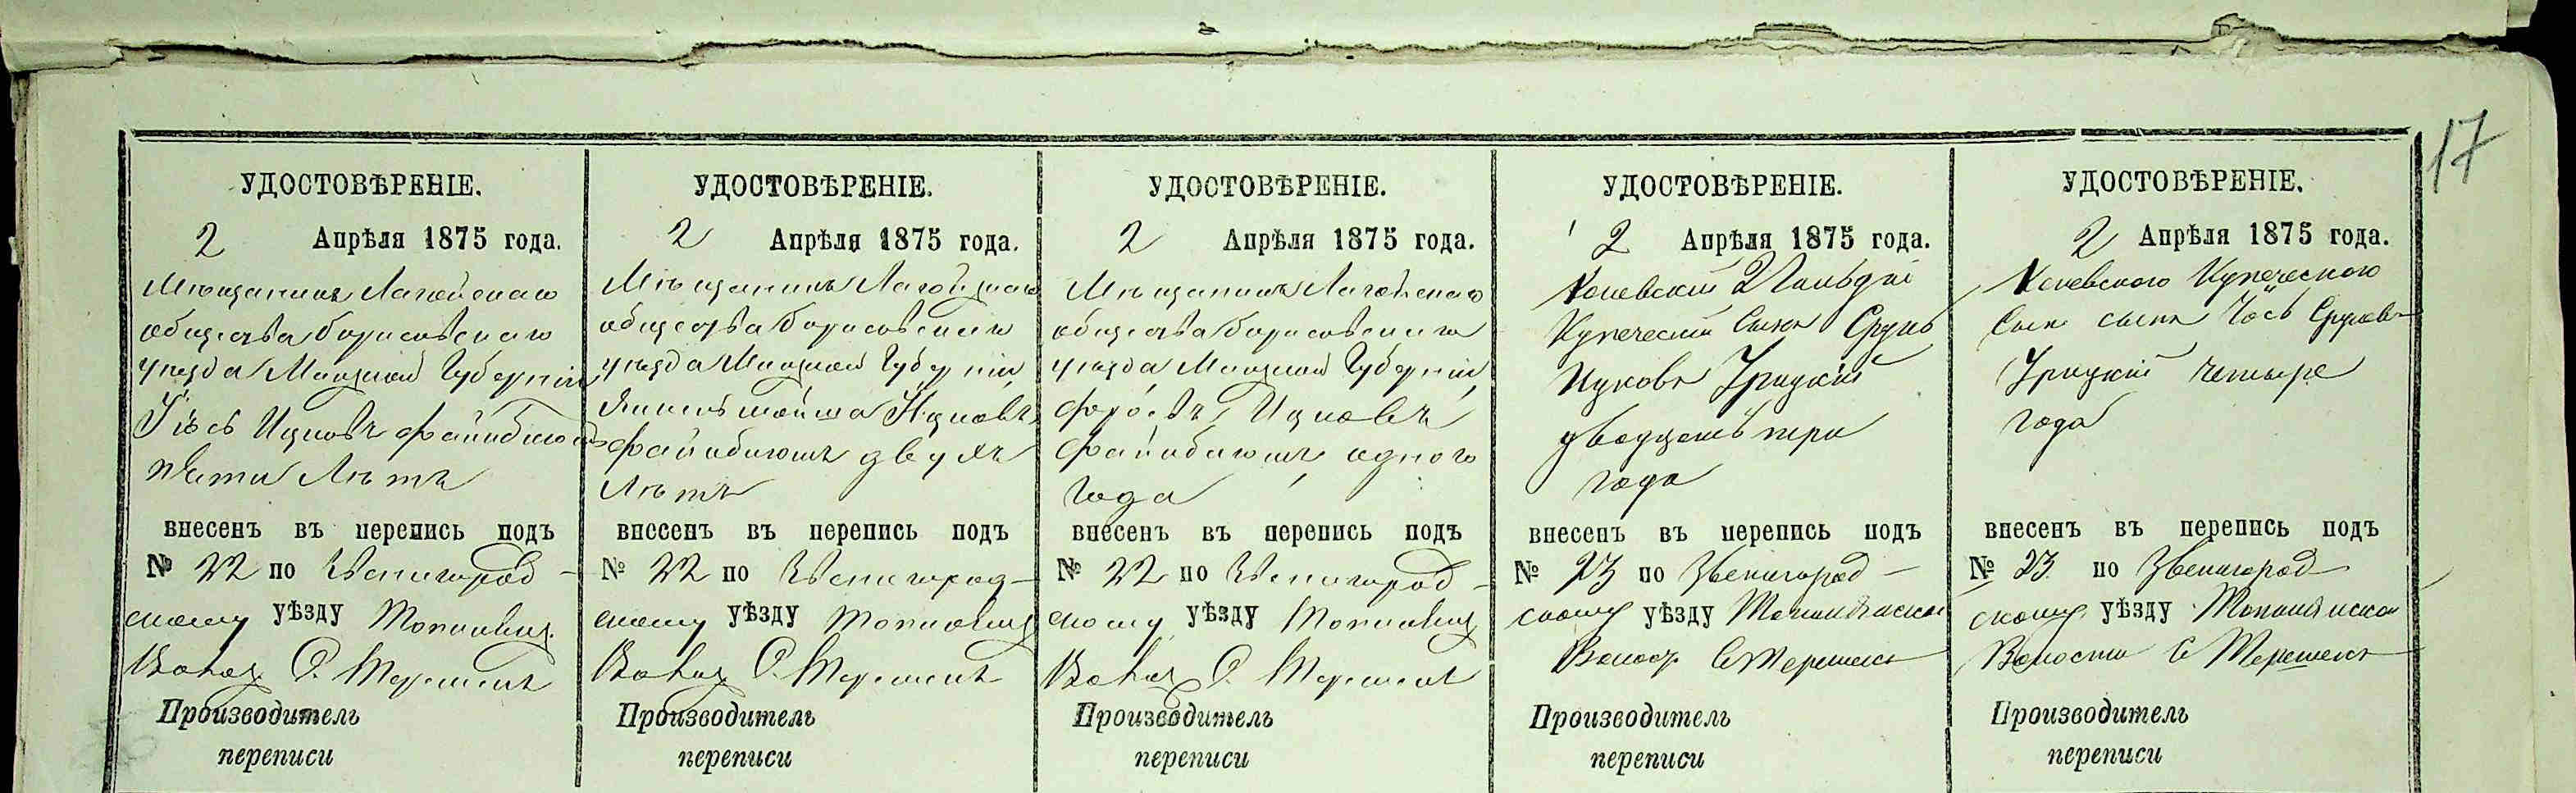 17
УДОСТОВѢРЕНІЕ.
2 Апрѣля 1875 года.
Мѣщанинъ Лагойскаго
общества Борисовскаго
уѣзда Минской Губерніи
Іось Ицковъ Файнбиюмъ
пяти лѣтъ
внесенъ въ перепись подъ
№ 22 по Звенигород-
скому уѣзду
Волос С.
Производитель
переписи
УДОСТОВѢРЕНІЕ.
2 Апрѣля 1875 года.
Мѣщанинъ Лагойскаго
общества Борисовскаго
уѣзда Минской Губерніи
Мойша Ицковъ
двухъ
лѣтъ
внесенъ въ перепись подъ
№ 22 по Звенигород-
скому уѣзду
Волос С.
Производитель
переписи
УДОСТОВѢРЕНІЕ.
2 Апрѣля 1875 года.
Мѣщанинъ Лагойскаго
общества Борисовскаго
уѣзда Минской Губерніи
Ицковъ
одного
года
внесенъ въ перепись подъ
№ 22 по Звенигород-
скому уѣзду
Волос С.
Производитель
переписи
УДОСТОВѢРЕНІЕ.
2 Апрѣля 1875 года.
Каневскій
Купеческій Сынъ Сруль
Ицковъ Урицкій
двадцать три
года
внесенъ въ перепись подъ
№ 23 по Звенигород-
скому уѣзду
Волост С
Производитель
переписи
УДОСТОВѢРЕНІЕ.
2 Апрѣля 1875 года.
Каневского Купеческого
Сына сынъ Іось Срулевъ
Урицкій четыре
года
внесенъ въ перепись подъ
№ 23 по Звенигород-
скому уѣзду
Волости С
Производитель
переписи